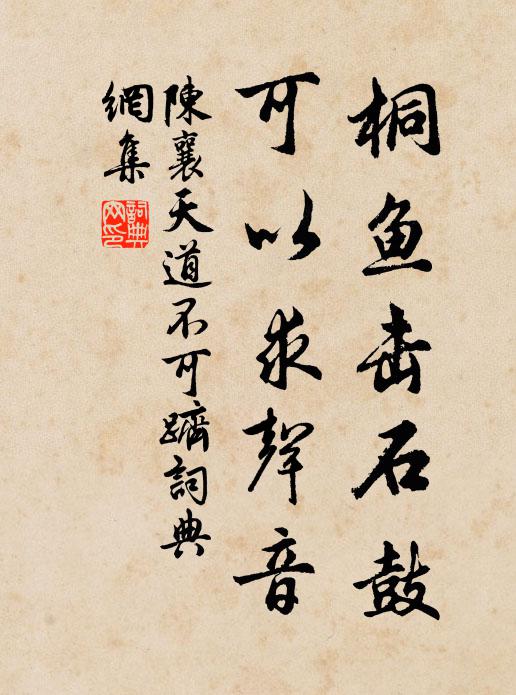 桐鱼击石鼓
可以求聲音
陳襄天道不可躋詞典
網集
詞典
网印